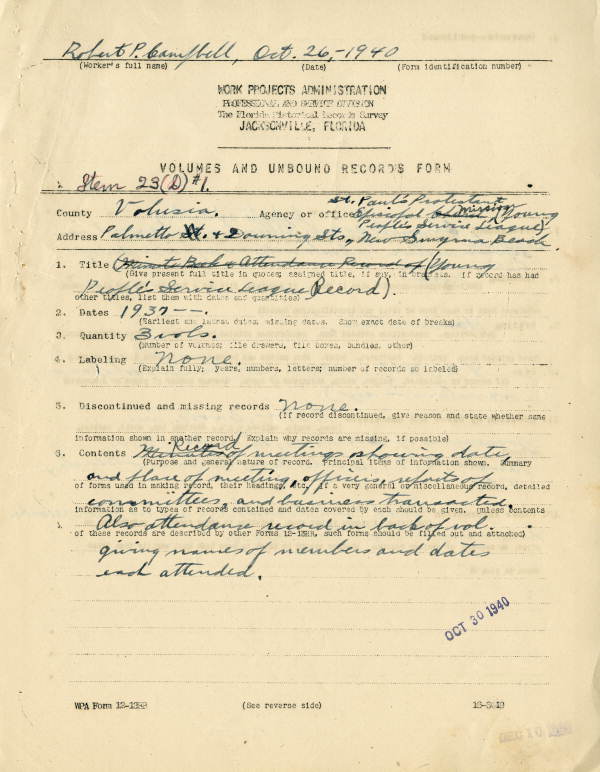 Robert P. Campbell, Oct. 26,-1940
(Worker's full name) (Date) (Form identification number)
WORK PROJECTS ADMINISTRATION
PROFESSIONAL AND SERVICE DIVISION
The Florida Historical Records Survey
JACKSONVILLE, FLORIDA
VOLUMES AND UNBOUND RECORDS FORM
Item 23(D) #1.
St. Paul's Protestant
County Volusia. Agency or office Episcopal Mission (Young
People's Service League)
Address Palmetto St. & Downing Sts., New Smyrna Beach
1. Title (Minute Book & Attendance Record of (Young
(Give present full title in quotes; assigned title, if any, in brackets. If record has had
People's Service League Record).
other titles, list them with dates and quantities)
2. Dates 1937--.
(Earliest and latest dates, missing dates. Show exact date of breaks)
3. Quantity 3 vols.
(Number of volumes; file drawers, file boxes, bundles, other)
4. Labeling none.
(Explain fully; years, numbers, letters; number of records so labeled)
5. Discontinued and missing records none.
(If record discontinued, give reason and state whether same
information shown in another record. Explain why records are missing, if possible)
Record
6. Contents Minutes of meetings showing date
(Purpose and general nature of record. Principal items of information shown. Summary
and place of meeting, officers, reports of
of forms used in making record, their headings, etc. If a very general or miscellaneous record, detailed
committees, and business transacted.
information as to types of records contained and dates covered by each should be given. Unless contents
Also attendance record in back of vol.
of these records are described by other Forms 12-13HR, such forms should be filled out and attached)
giving names of members and dates
each attended.
OCT 30 1940
WPA Form 12-13HR (See reverse side)
DEC 10